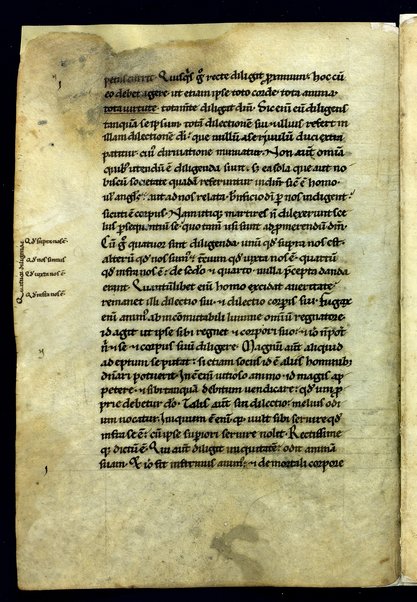 petus currit. Quisq's g° recte diligit p'ximum. hoc cū
eo debet agere. ut etiam ipse toto corde. tota anima.
tota uirtute. tota m̄te diligat dm̄. Sic enī eū diligens
tanquā se ipsum. totā dilectionem sui ⁊ illius refert in
illam dilectionem di. que nullū a se riuulū duci extra
patitur. cui' diriuatione minuatur. Non aut' omīa
quib' utendū ē diligenda sunt. sꝫ ea sola que aut no
biscū societate quadā referuntur in dm̄. sic ē homo
aut ad nos relata. b'nficio di p nos indigent
sicuti ē corpus. Nam utiq; martires n̄ dilexer̄t sce
lus p̄sequentiū se. quo tam̄ usi sunt ad p̄merendū dm̄.
Cū g° quatuor sint diligenda. unū qd' supra nos est.
alterū qd' nos sum'. t'cium qd' iuxta nos ē. quartū
qd' infra nos ē. de sc'do ⁊ quarto nulla p̄cepta danda
erant. Quantūlibet eni homo excidat a ueritate.
remanet illi dilectio sui. ⁊ dilectio corpis sui. fugax
eni anim' ab incōmutabili lumine omīum regnatore.
id agit ut ipse sibi regnet ⁊ corpori suo.
n̄ ⁊ se ⁊ corpus suū diligere. Magnum aut' aliquid
adeptum se putat. si etiam sociis id ē aliis hominib'
dn̄ari potuerit. In ē eni uitioso animo. id magis ap
petere. ⁊ sibi tanquā debitum uendicare. qd' uni p
prie debetur do. Talis aut' sui dilectio. melius odi
um uocatur. Iniquum ē eni. q; uult sibi seruire qd'
infra se ē. cū ipse sup'iori seruire nolit. Rectissime
q; dictū ē. Qui aut' diligit iniquitatē. odit animā
suam. ⁊ io fit infirmus anim'. ⁊ de mortali corpore
Quatuor diligenda
Qd' supra nos ē.
Qd' nos sumus
Qd' iuxta nos ē.
Qd' infra nos ē.